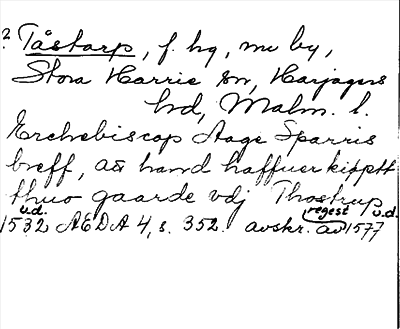 ? Tåstarp, f. hg, nu by,
Stora Harrie sn, Harjagers
hd, Malm. l.
Erchebiscop Aage Sparris
breff, att hand haffuer kiøptt
thuo gaarde vdj Thostrup
u.d. regest u.d.
1532 AEDA 4, s. 352. avskr. av 1577